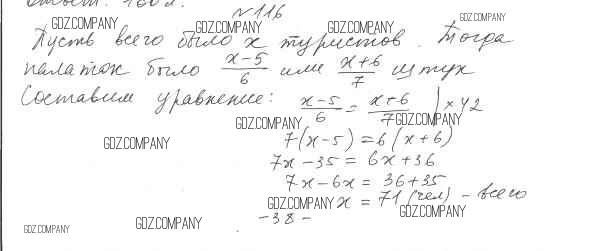 №116
GDZ.COMPANY GDZ.COMPANY GDZ.COMPANY GDZ.COMPANY
Пусть всего было x туристов. Тогда
палаток было x-5/6 или x+6/7 штук
Составим уравнение: x-5/6 = x+6/7 | × 42
GDZ.COMPANY GDZ.COMPANY
GDZ.COMPANY 7(x-5) = 6(x+6)
7x - 35 = 6x + 36
7x - 6x = 36 + 35
GDZ.COMPANY x = 71 (чел) - всего
GDZ.COMPANY GDZ.COMPANY - 38 - GDZ.COMPANY